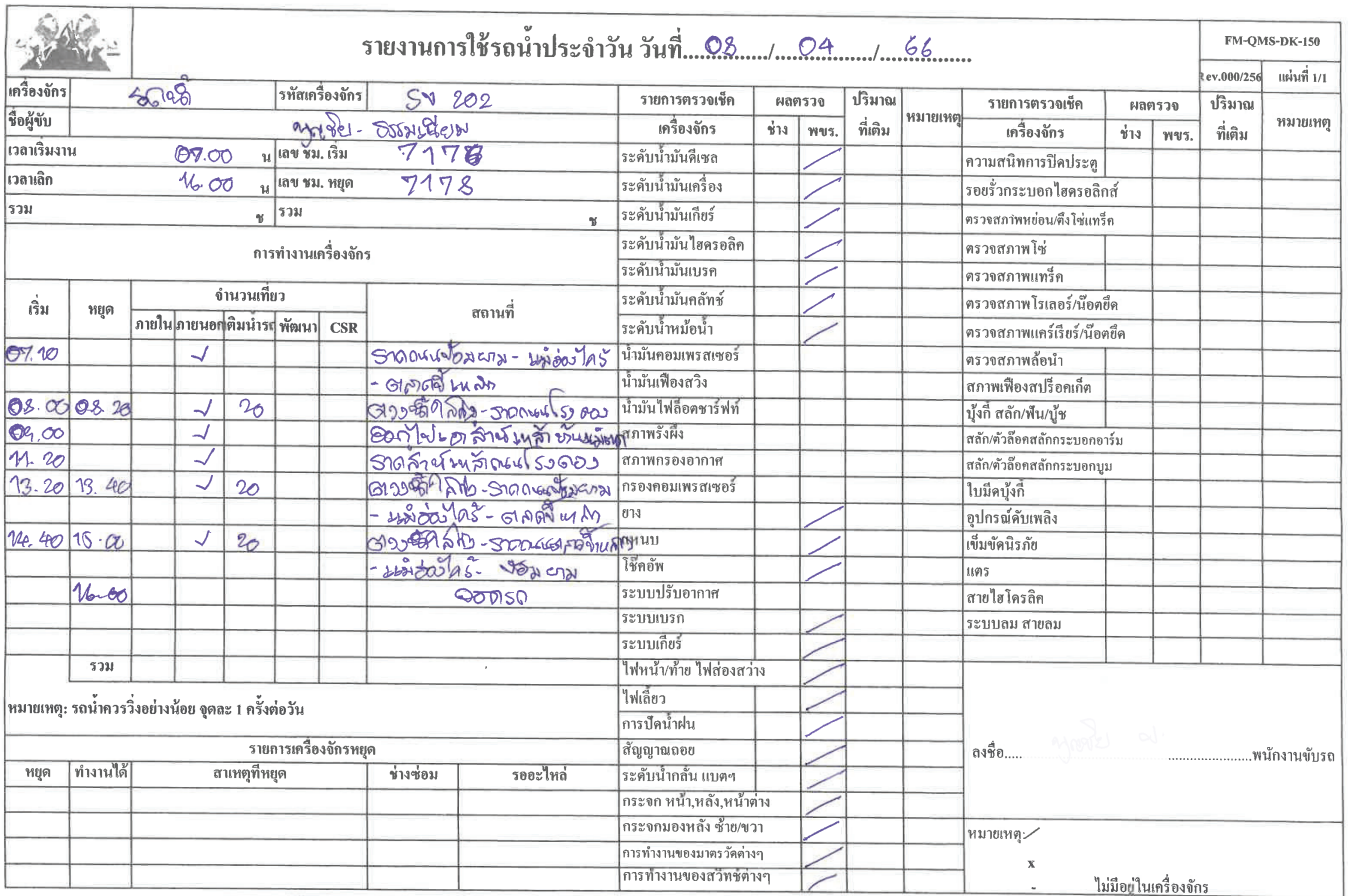 รายงานการใช้รถน้ำประจำวัน วันที่...08....../...04....../...66......
FM-QMS-DK-150
ev.000/256 แผ่นที่ 1/1
เครื่องจักร รถน้ำ รหัสเครื่องจักร รง 202
ชื่อผู้ขับ ธรรมเนียม
เวลาเริ่มงาน 07.00 น เลข ชม. เริ่ม 7176
เวลาเลิก 16.00 น เลข ชม. หยุด 7178
รวม ช รวม ช
การทำงานเครื่องจักร
เริ่ม หยุด จำนวนเที่ยว สถานที่
ภายใน ภายนอก เติมน้ำรถ พัฒนา CSR
07.10 ✓ ราดถนนป้อมยาม - แม่ฮ่องไคร้
- ตลาดขี้เหล็ก
08.00 08.20 ✓ 20 - ราดถนนโรงดอง
09.00 ✓
11.20 ✓
13.20 13.40 ✓ 20 - ราดถนนป้อมยาม
- แม่ฮ่องไคร้ - ตลาดขี้เหล็ก
14.40 15.00 ✓ 20
- แม่ฮ่องไคร้ - ป้อมยาม
16.00 จอดรถ
รวม
หมายเหตุ: รถน้ำควรวิ่งอย่างน้อย จุดละ 1 ครั้งต่อวัน
รายการเครื่องจักรหยุด
หยุด ทำงานได้ สาเหตุที่หยุด ช่างซ่อม รออะไหล่
รายการตรวจเช็ค ผลตรวจ ปริมาณ หมายเหตุ
เครื่องจักร ช่าง พขร. ที่เติม
ระดับน้ำมันดีเซล /
ระดับน้ำมันเครื่อง /
ระดับน้ำมันเกียร์ /
ระดับน้ำมันไฮดรอลิค /
ระดับน้ำมันเบรค /
ระดับน้ำมันคลัทช์ /
ระดับน้ำหม้อน้ำ /
น้ำมันคอมเพรสเซอร์
น้ำมันเฟืองสวิง
น้ำมันไฟล็อตชาร์ฟท์
สภาพรังผึ้ง
สภาพกรองอากาศ
กรองคอมเพรสเซอร์
ยาง /
แหนบ /
โช๊คอัพ /
ระบบปรับอากาศ
ระบบเบรก /
ระบบเกียร์ /
ไฟหน้า/ท้าย ไฟส่องสว่าง /
ไฟเลี้ยว /
การปัดน้ำฝน /
สัญญาณถอย /
ระดับน้ำกลั่น แบตฯ /
กระจก หน้า,หลัง,หน้าต่าง /
กระจกมองหลัง ซ้าย/ขวา /
การทำงานของมาตรวัดต่างๆ /
การทำงานของสวิทช์ต่างๆ /
รายการตรวจเช็ค ผลตรวจ ปริมาณ หมายเหตุ
เครื่องจักร ช่าง พขร. ที่เติม
ความสนิทการปิดประตู
รอยรั่วกระบอกไฮดรอลิกส์
ตรวจสภาพหย่อน/ตึงโซ่แทร็ค
ตรวจสภาพโซ่
ตรวจสภาพแทร็ค
ตรวจสภาพโรเลอร์/น๊อตยึด
ตรวจสภาพแคร์เรียร์/น๊อตยึด
ตรวจสภาพล้อนำ
สภาพเฟืองสปร็อคเก็ต
บุ้งกี๋ สลัก/ฟัน/บู้ช
สลัก/ตัวล๊อคสลักกระบอกอาร์ม
สลัก/ตัวล๊อคสลักกระบอกบูม
ใบมีดบุ้งกี๋
อุปกรณ์ดับเพลิง
เข็มขัดนิรภัย
แตร
สายไฮโครลิค
ระบบลม สายลม
ลงชื่อ..... .......................พนักงานขับรถ
หมายเหตุ: /
x
- ไม่มีอยู่ในเครื่องจักร